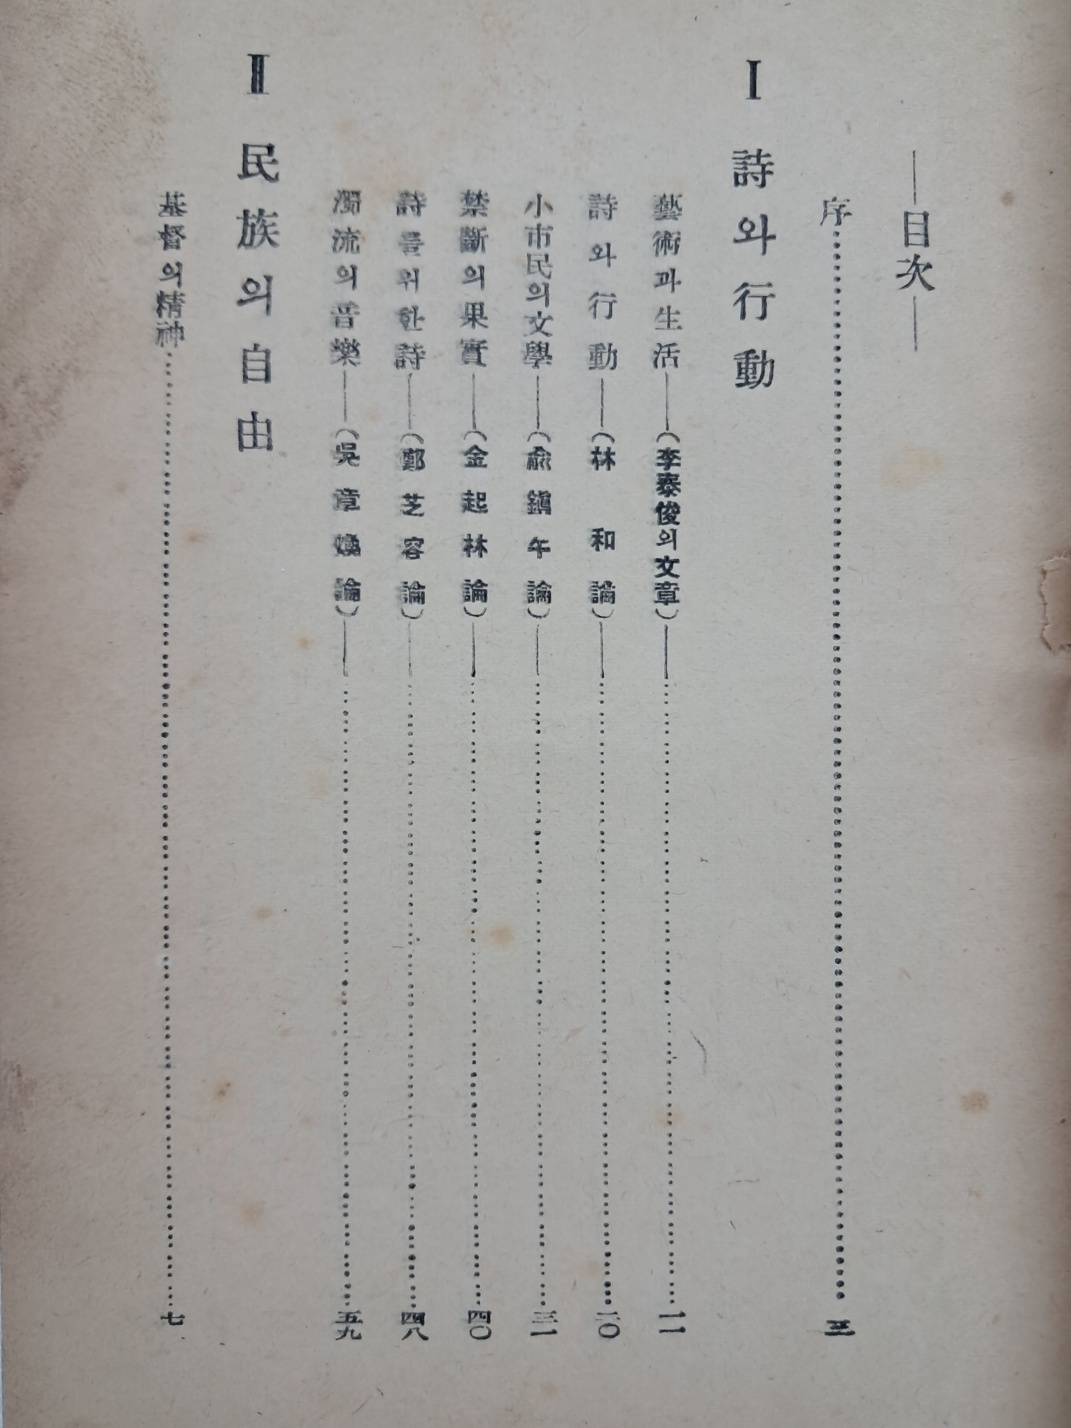 目次
序 三
Ⅰ 詩와行動
藝術과生活——(李泰俊의文章)—— 一一
詩와行動——(林和論)—— 二〇
小市民의文學——(兪鎭午論)—— 三一
禁斷의果實——(金起林論)—— 四〇
詩를위한詩——(鄭芝容論)—— 四八
濁流의音樂——(吳章煥論)—— 五九
Ⅱ 民族의自由
基督의精神 七